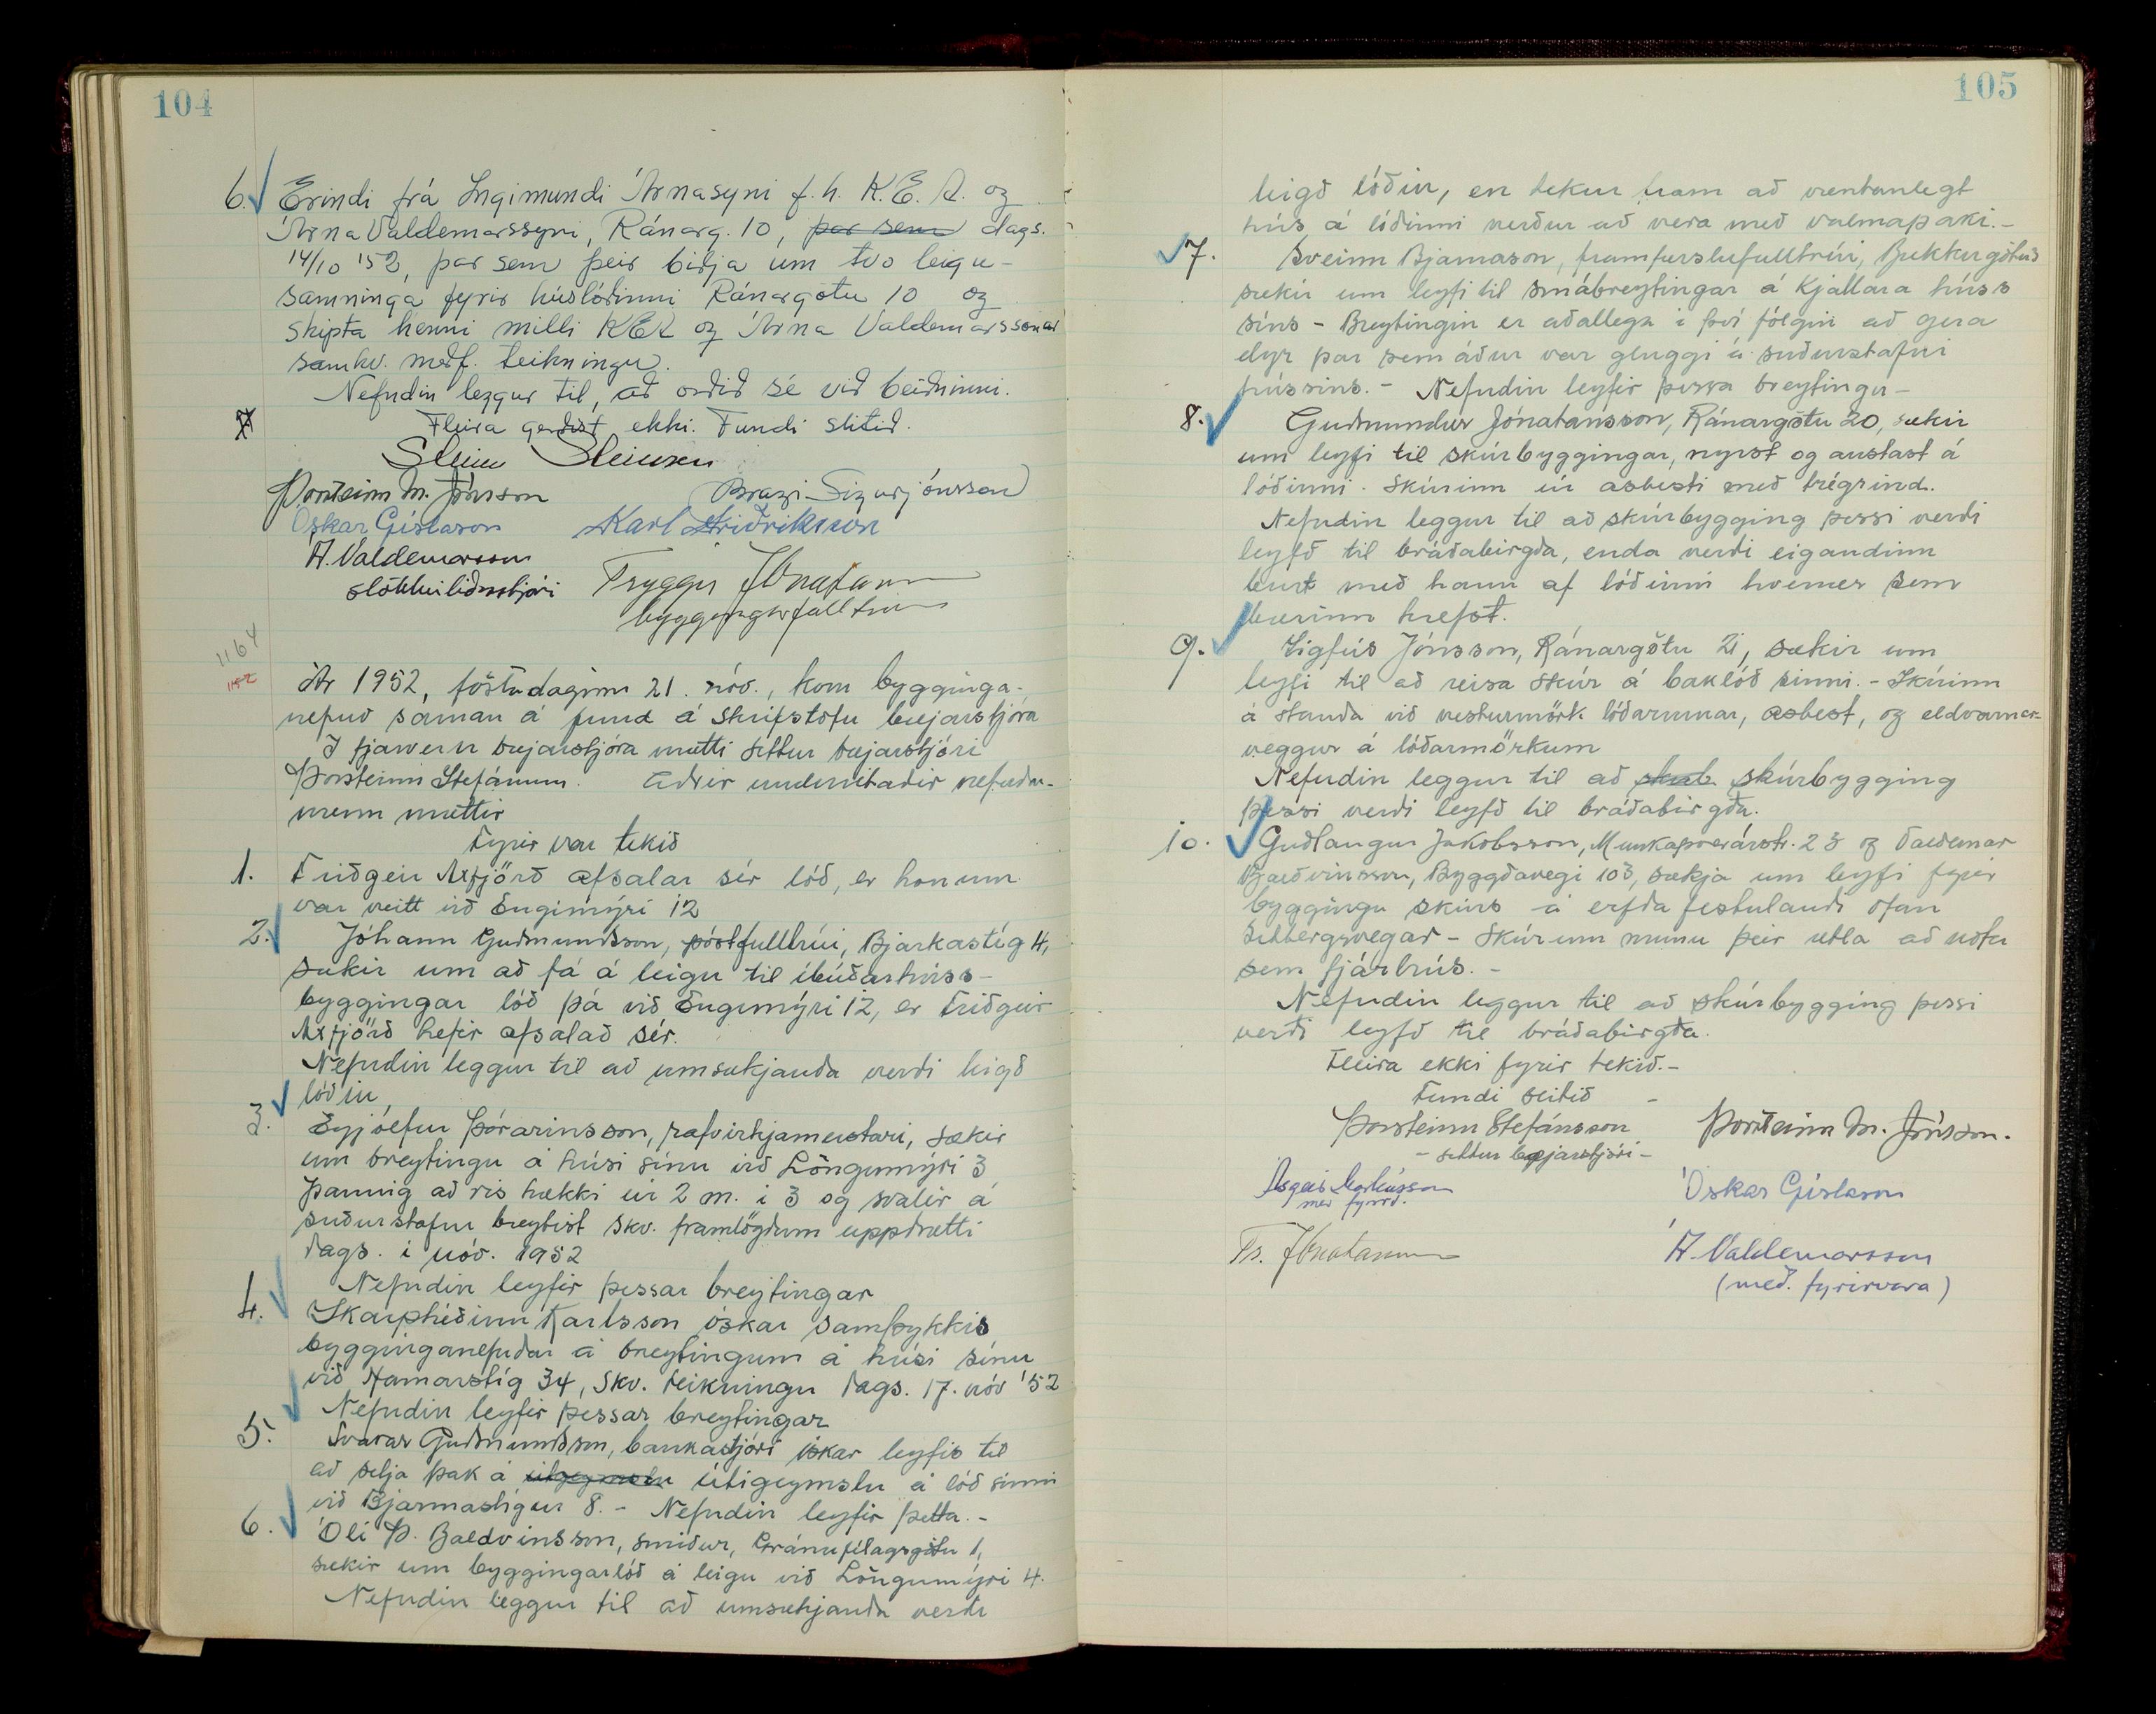 104
6. Erindi frá Ingimundi Árnasyni f.h. K.E.A. og
Árna Valdemarssyni, Ránarg. 10, þar sem dags.
14/10 '52, þar sem þeir biðja um tvo leigu-
samninga fyrir húslóðinni Ránargötu 10 og
skipta henni milli KEA og Árna Valdemarssonar
samkv. meðf. teikningu.
Nefndin leggur til, að orðið sé við beiðninni.
Fleira gerðist ekki. Fundi slitið.
Steinn Steinsen
Þorsteinn M. Jónsson Bragi Sigurjónsson
Óskar Gíslason Karl Friðriksson
Á. Valdemarsson
slökkviliðsstjóri Tryggvi Jónatansson
byggingarfulltrúi
1164
Ár 1952, föstudaginn 21. nóv., kom bygginga-
nefnd saman á fund á skrifstofu bæjarstjóra
Í fjarveru bæjarstjóra mætti settur bæjarstjóri
Þorsteinn Stefánsson. Aðrir undirritaðir nefndar-
menn mættir
Fyrir var tekið
1. Friðgeir Axfjörð afsalar sér lóð, er honum
var veitt við Engimýri 12
2. Jóhann Guðmundsson, póstfulltrúi, Bjarkastíg 4,
sækir um að fá á leigu til íbúðarhúss-
byggingar lóð þá við Engimýri 12, er Friðgeir
Axfjörð hefir afsalað sér.
Nefndin leggur til að umsækjanda verði leigð
lóðin,
3. Eyjólfur Þórarinsson, rafvirkjameistari, sækir
um breytingu á húsi sínu við Löngumýri 3
Þannig að ris hækki úr 2 m. í 3 og svalir á
suðurstafni breytist skv. framlögðum uppdrætti
dags. í nóv. 1952
Nefndin leyfir þessar breytingar
4. Skarphéðinn Karlsson óskar samþykkis
bygginganefndar á breytingum á húsi sínu
við Hamarstíg 34, skv. teikningu dags. 17. nóv '52
Nefndin leyfir þessar breytingar
5. Svavar Guðmundsson, bankastjóri óskar leyfis til
að setja þak á útigeymslu útigeymslu á lóð sinni
við Bjarmastígur 8. - Nefndin leyfir þetta. -
6. Óli Þ. Baldvinsson, smiður, Gránufélagsgötu 1,
sækir um byggingarlóð á leigu við Löngumýri 4.
Nefndin leggur til að umsækjanda verði
105
leigð lóðin, en tekur fram að væntanlegt
hús á lóðinni verður að vera með valmaþaki. -
7. Sveinn Bjarnason, framfærslufulltrúi, Brekkugötu 3
sækir um leyfi til smábreytingar á kjallara húss
síns - Breytingin er aðallega í því fólgin að gera
dyr þar sem áður var gluggi á suðurstafni
hússins. - Nefndin leyfir þessa breytingu -
8. Guðmundur Jónatansson, Ránargötu 20, sækir
um leyfi til skúrbyggingar, nyrst og austast á
lóðinni. Skúrinn úr asbesti með trégrind.
Nefndin leggur til að skúrbygging þessi verði
leyfð til bráðabirgða, enda verði eigandinn
burt með hann af lóðinni hvenær sem
bærinn krefst.
9. Sigfús Jónsson, Ránargötu 21, sækir um
leyfi til að reisa skúr á baklóð sinni. - Skúrinn
á standa við vesturmörk lóðarinnar, asbest, og eldvarnar-
veggur á lóðarmörkum
Nefndin leggur til að skúrbygging
þessi verði leyfð til bráðabirgða.
10. Guðlaugur Jakobsson, Munkaþverárstr. 23 og Valdemar
Baldvinsson, Byggðavegi 103, sækja um leyfi fyrir
byggingu skúrs á erfðafestulandi ofan
Setbergsvegar - Skúrinn munu þeir ætla að nota
sem fjárhús. -
Nefndin leggur til að skúrbygging þessi
verði leyfð til bráðabirgða.
Fleira ekki fyrir tekið. -
Fundi slitið -
Þorsteinn Stefánsson Þorsteinn M. Jónsson.
- settur bæjarstjóri -
Ásgeir Markússon Óskar Gíslason
með fyrirv.
Tr. Jónatansson Á. Valdemarsson
(með. fyrirvara)